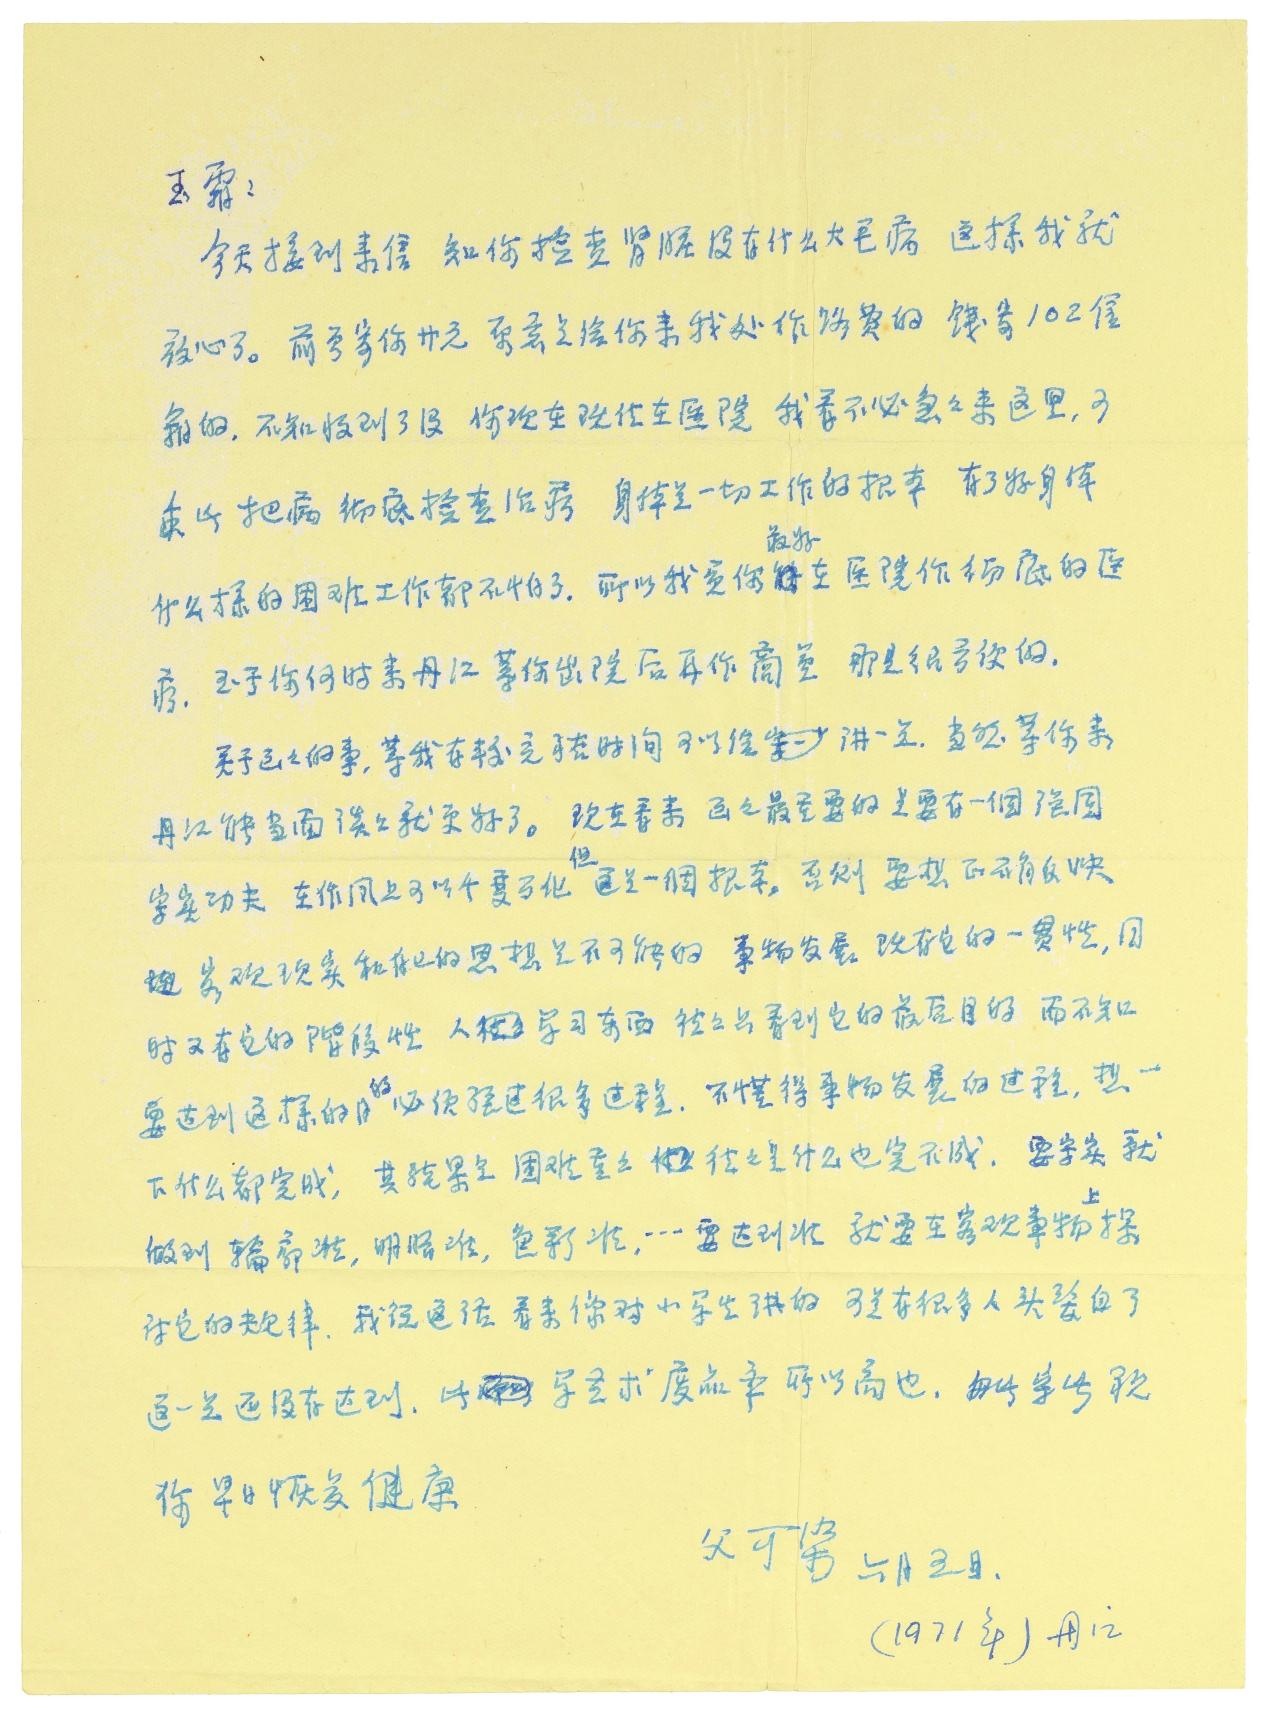 玉霜：
今天接到来信 知你检查肾脏没有什么大毛病 这样我就
放心了。前曾寄你廿元 原意是给你来我处作路费的 钱寄102信
箱的，不知收到了没 你现在既住在医院 我看不必急々来这里，可
在此把病彻底检查治疗 身体是一切工作的根本 有了好身体
什么样的困难工作都不怕了．所以我要你最好在医院作彻底的医
疗．至于你何时来丹江 等你出院后再作商量 那是很方便的．
关于画々的事，等我有较充裕时间 可以给 讲一点．当然等你来
丹江能当面谈々就更好了。现在看来 画々最重要的是要有一個强固
写实功夫 在作风上可以千变万化 但这是一個根本。否则 要想正确反映
客观现实和自己的思想是不可能的 事物发展 既有它的一贯性，同
时又有它的阶段性 人 学习东西 往々只看到它的最后目的 而不知
要达到这样的目的必须经过很多过程．不懂得事物发展的过程，想一
下什么都完成，其结果是 困难重々 往々是什么也完不成．要写实 就
做到 轮廓准，明暗准，色彩准，…要达到准 就要在客观事物上探
讨它的规律．我说这话 看来像对小学生讲的 可是有很多人头发白了
这一点还没有达到．此 学艺术废品率所以高也．匆此 祝
你早日恢复健康
父可染 六月五日．
(1971年) 丹江